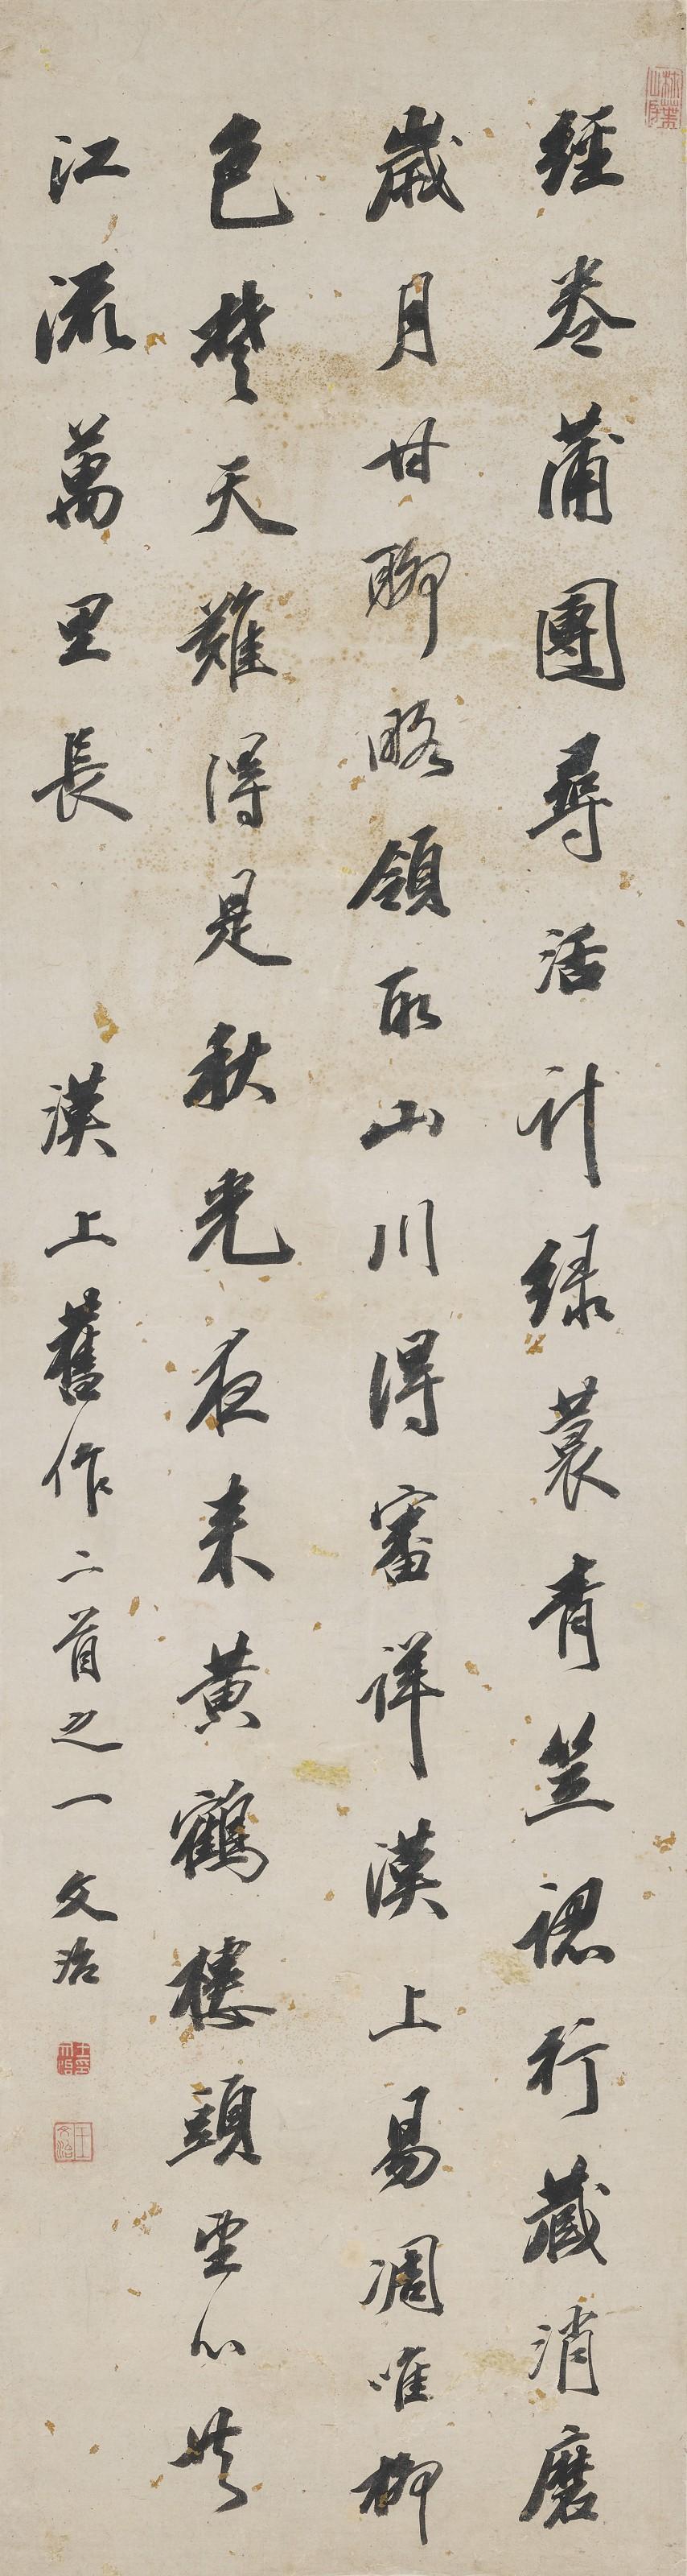 經卷蒲團尋活計綠蓑青笠認行藏消磨
歲月甘聊略領取山川得審詳漢上易凋唯柳
色楚天難得是秋光夜來黃鶴樓頭望心共
江流萬里長 漢上舊作二首之一 文治
王文治